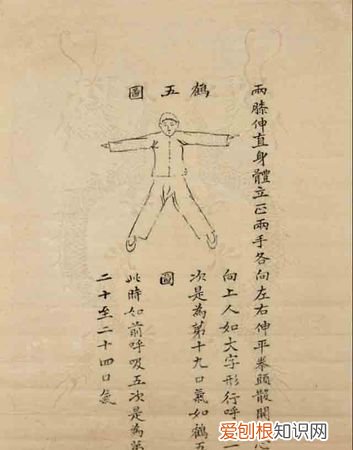 鶴五圖
兩膝伸直身體立正兩手各向左右伸平拳頭散開心
向上人如大字形行呼一
次是為第十九口氣如鶴五
圖
此時如前呼吸五次是為第
二十至二十四口氣
爱刨根知识网